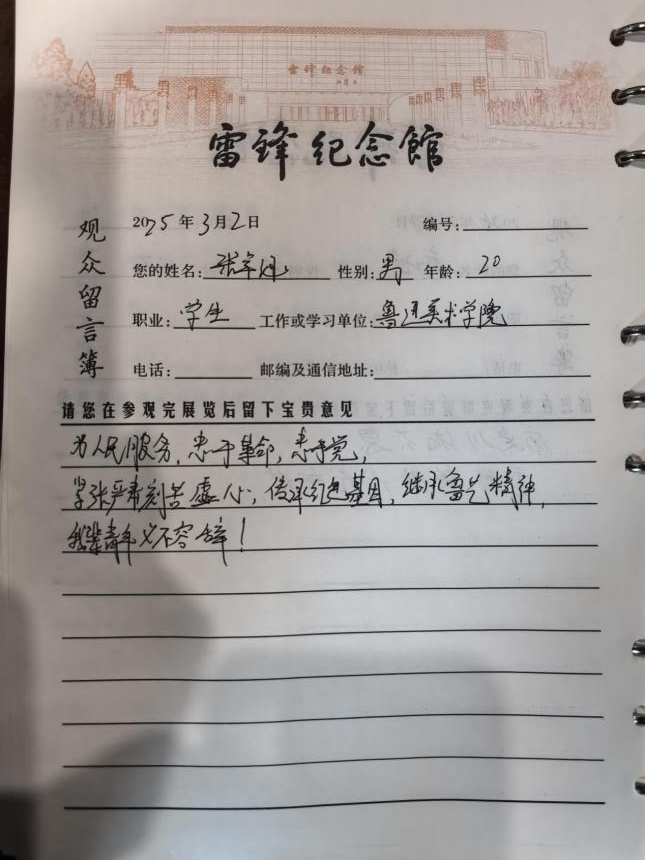 雷锋纪念馆
雷锋纪念馆
观众留言簿
2025年3月2日 编号:
您的姓名:张 性别:男 年龄:20
职业:学生 工作或学习单位:鲁迅美术学院
电话: 邮编及通信地址:
请您在参观完展览后留下宝贵意见
为人民服务,忠于革命,忠于党,
紧张严肃刻苦虚心,传承红色基因,继承鲁艺精神,
我辈青年义不容辞!